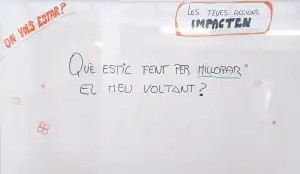 ON VOLS ESTAR?
LES TEVES ACCIONS
IMPACTEN
QUÈ ESTIC FENT PER MILLORAR
EL MEU VOLTANT?